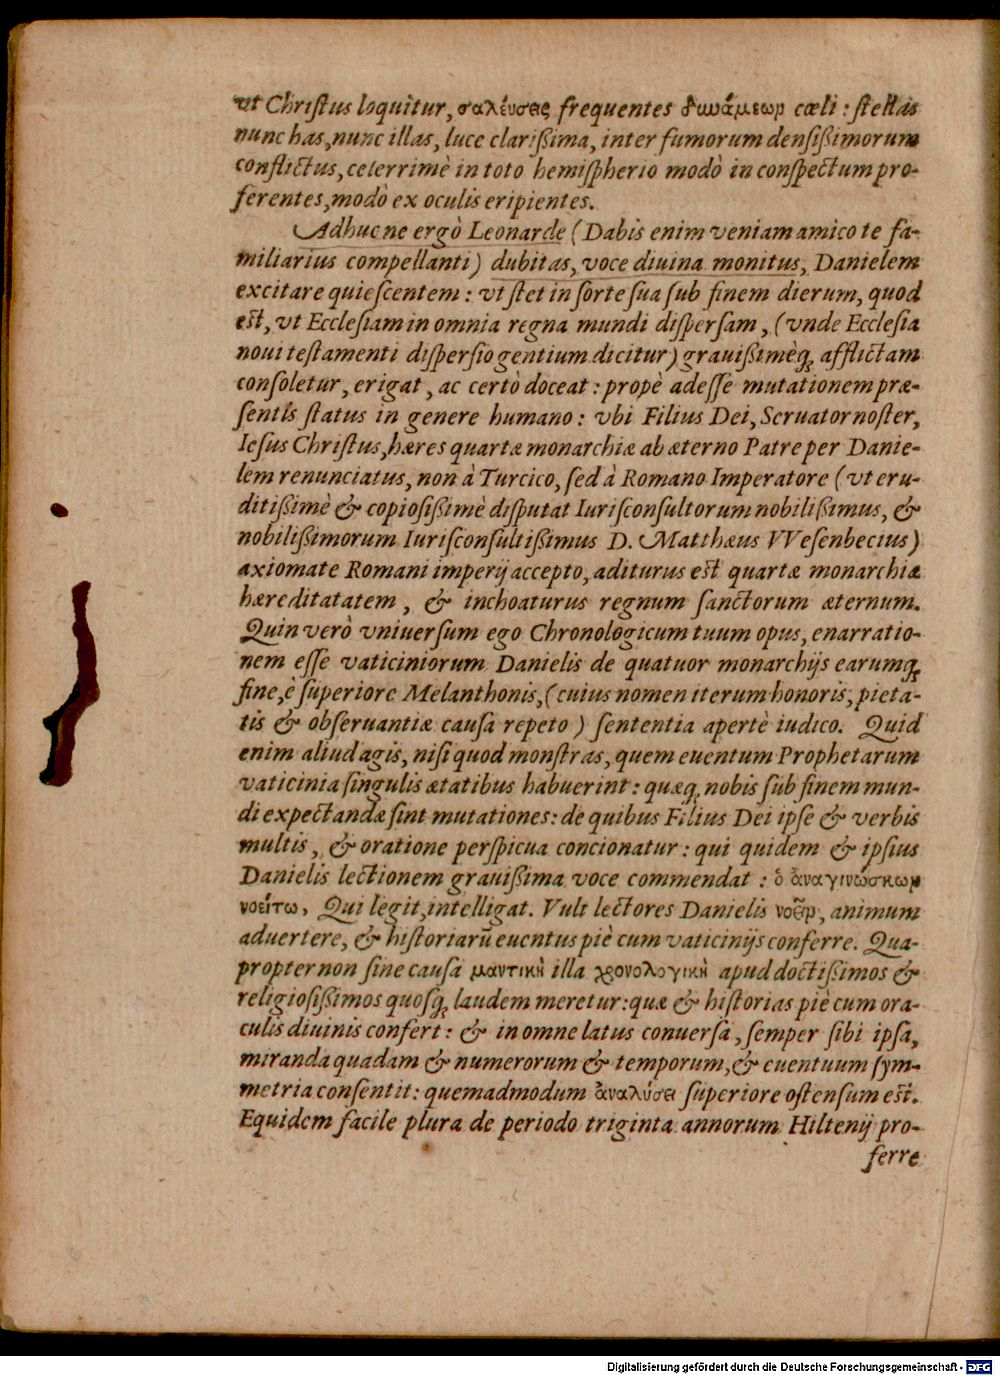 vt Chriſtus loquitur, σαλέυσεις frequentes δυνάμεων cœli: ſtellas
nunc has, nunc illas, luce clarißima, inter fumorum denſißimorum
conflictus, celerrimè in toto hemiſpherio modò in conſpectum pro-
ferentes, modò ex oculis eripientes.
Adhucne ergò Leonarde (Dabis enim veniam amico te fa-
miliarius compellanti) dubitas, voce diuina monitus, Danielem
excitare quieſcentem: vt ſtet in ſorte ſua ſub finem dierum, quod
eſt, vt Eccleſiam in omnia regna mundi diſperſam, (vnde Eccleſia
noui teſtamenti diſperſio gentium dicitur) grauißimèq; afflictam
conſoletur, erigat, ac certò doceat: propè adeſſe mutationem præ-
ſentis ſtatus in genere humano: vbi Filius Dei, Seruator noſter,
Ieſus Chriſtus, hæres quartæ monarchiæ ab æterno Patre per Danie-
lem renunciatus, non à Turcico, ſed à Romano Imperatore (vt eru-
ditißimè & copioſißimè diſputat Iuriſconſultorum nobilißimus, &
nobilißimorum Iuriſconſultißimus D. Matthæus VVeſenbecius)
axiomate Romani imperij accepto, aditurus eſt quartæ monarchiæ
hæreditatatem, & inchoaturus regnum ſanctorum æternum.
Quin verò vniuerſum ego Chronologicum tuum opus, enarratio-
nem eſſe vaticiniorum Danielis de quatuor monarchijs earumq;
fine, è ſuperiore Melanthonis, (cuius nomen iterum honoris, pieta-
tis & obſeruantiæ cauſa repeto) ſententia apertè iudico. Quid
enim aliud agis, niſi quod monſtras, quem euentum Prophetarum
vaticinia ſingulis ætatibus habuerint: quæq; nobis ſub finem mun-
di expectandæ ſint mutationes: de quibus Filius Dei ipſe & verbis
multis, & oratione perſpicua concionatur: qui quidem & ipſius
Danielis lectionem grauißima voce commendat: ὁ ἀναγινώσκων
νοείτω, Qui legit, intelligat. Vult lectores Danielis νοεῖν, animum
aduertere, & hiſtoriarū euentus piè cum vaticinijs conferre. Qua-
propter non ſine cauſa μαντικὴ illa χρονολογικὴ apud doctißimos &
religioſißimos quoſq; laudem meretur: quæ & hiſtorias piè cum ora-
culis diuinis confert: & in omne latus conuerſa, ſemper ſibi ipſa,
miranda quadam & numerorum & temporum, & euentuum ſym-
metria conſentit: quemadmodum ἀναλύσει ſuperiore oſtenſum eſt.
Equidem facile plura de periodo triginta annorum Hiltenij pro-
ferre
Digitalisierung gefördert durch die Deutsche Forschungsgemeinschaft - DFG